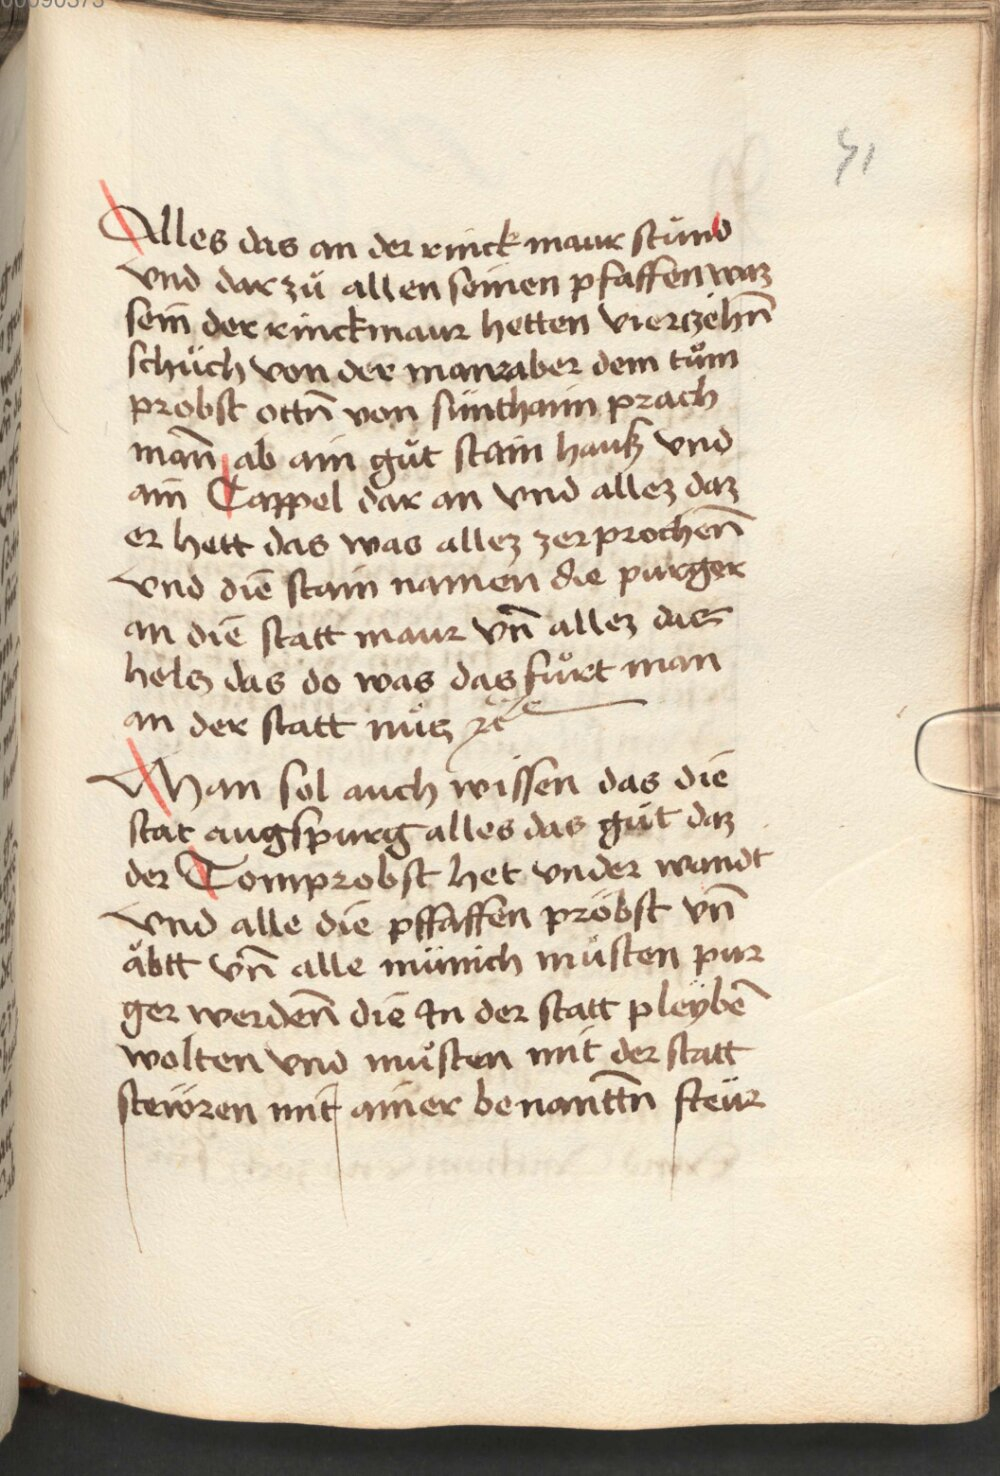 71
Alles das an der rinckmaur stůnd
vnd dar zů allen seinen pfaffen waz
sein der rinckmaur hetten vierzehn̄
schůch von der maur aber dem tům
probst ottn̄ von sunthaim prach
man̄ ab ain gůt stain hauß vnd
ain Cappel dar an vnd allez daz
er hett das was allez zerprochen̄
vnd die stain namen die purger
an die statt maur vn̄ allez das
holz das do was das fůrt man
an der statt nůtz ⁊c̄
Man sol auch wissen das die
stat augspurg alles das gůt daz
der Tomprobst het vnder wandt
vnd alle die pffaffen pröbst vn̄
äbtt vn̄ alle münich můsten pur
ger werden̄ die In der statt pleyben̄
wolten vnd můsten mit der statt
stewren mit ainer benanttn̄ steür